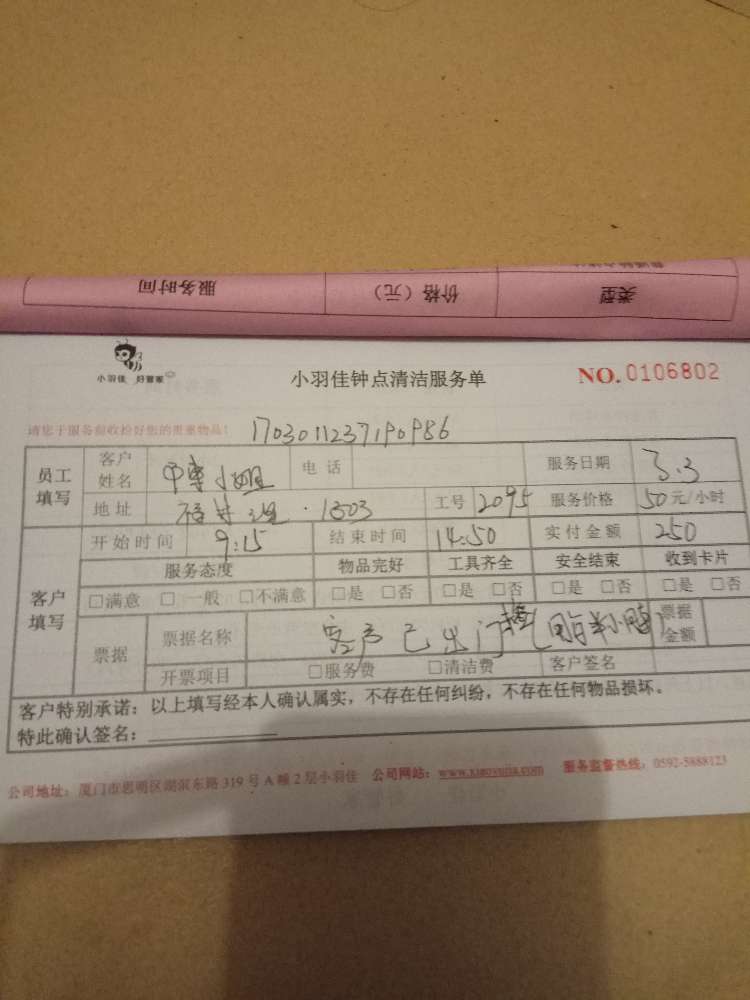 服务时间 价格（元） 类型
小羽佳 好管家
小羽佳钟点清洁服务单 NO. 0106802
请您于服务前收拾好您的贵重物品！ 1703011237190986
员工填写 客户姓名 小姐 电话 服务日期 3.3
地址 1303 工号 2095 服务价格 50元/小时
客户填写 开始时间 9:15 结束时间 14:50 实付金额 250
服务态度 物品完好 工具齐全 安全结束 收到卡片
□满意 □一般 □不满意 □是 □否 □是 □否 □是 □否 □是 □否
票据 票据名称 客户已出门 票据金额
开票项目 □服务费 □清洁费 客户签名
客户特别承诺：以上填写经本人确认属实，不存在任何纠纷，不存在任何物品损坏。
特此确认签名：
公司地址：厦门市思明区湖滨东路319号A幢2层小羽佳 公司网站：www.xiaoyujia.com 服务监督热线：0592-5888123